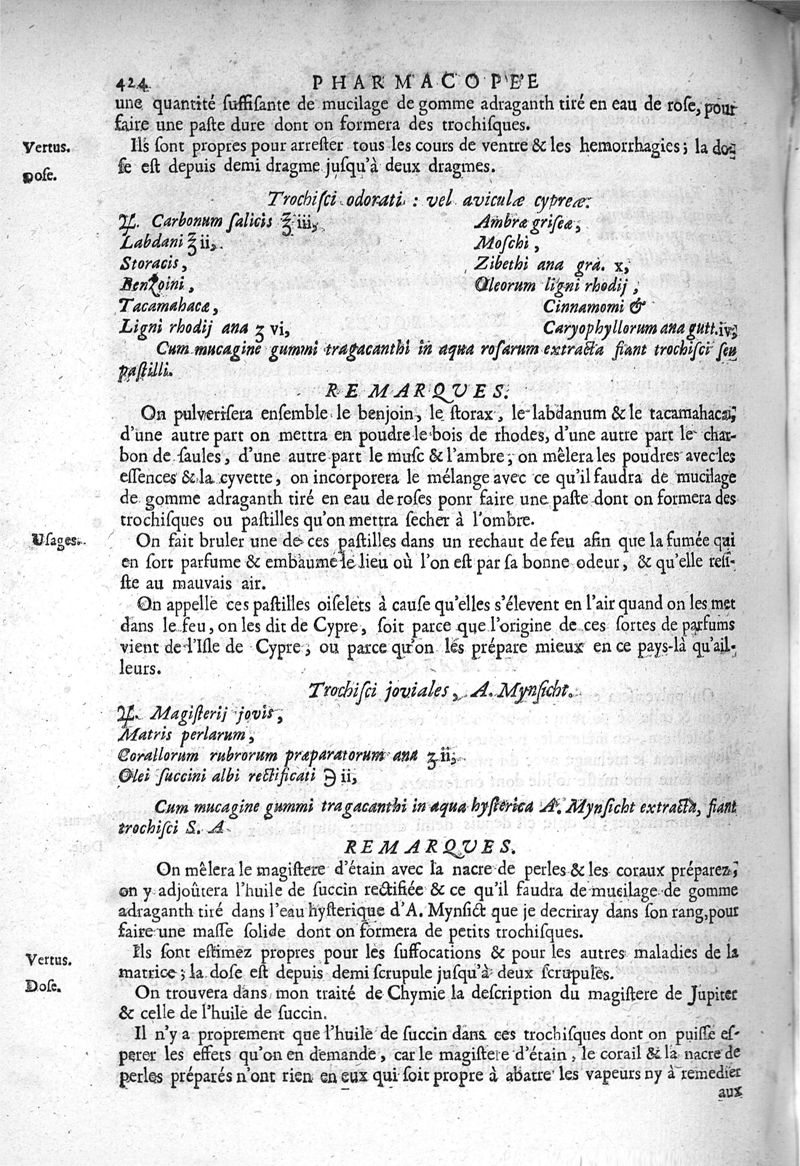 424 PHARMACOPÉE
une quantité ſuffiſante de mucilage de gomme adraganth tiré en eau de roſe, pour
faire une paſte dure dont on formera des trochiſques.
Vertus. Ils ſont propres pour arreſter tous les cours de ventre & les hemorrhagies; la do-
Doſe. ſe eſt depuis demi dragme juſqu'à deux dragmes.
Trochiſci odorati : vel aviculæ cypreæ.
♃. Carbonum ſalicis ℥ iii,
Labdani ℥ ii,
Storacis,
Benzoini,
Tacamahacæ,
Ligni rhodij ana ʒ vi,
Ambræ griſeæ,
Moſchi,
Zibethi ana gra. x,
Oleorum ligni rhodij,
Cinnamomi &
Caryophyllorum ana gutt. iv;
Cum mucagine gummi tragacanthi in aqua roſarum extracta fiant trochiſci ſeu
paſtilli.
REMARQUES.
On pulveriſera enſemble le benjoin, le ſtorax, le labdanum & le tacamahaca;
d'une autre part on mettra en poudre le bois de rhodes, d'une autre part le char-
bon de ſaules, d'une autre part le muſc & l'ambre, on mêlera les poudres avec les
eſſences & la cyvette, on incorporera le mélange avec ce qu'il faudra de mucilage
de gomme adraganth tiré en eau de roſes ponr faire une paſte dont on formera des
trochiſques ou paſtilles qu'on mettra ſecher à l'ombre.
Uſages. On fait bruler une de ces paſtilles dans un rechaut de feu afin que la fumée qui
en ſort parfume & embaume le lieu où l'on eſt par ſa bonne odeur, & qu'elle reſi-
ſte au mauvais air.
On appelle ces paſtilles oiſelets à cauſe qu'elles s'élevent en l'air quand on les met
dans le feu, on les dit de Cypre, ſoit parce que l'origine de ces ſortes de parfums
vient de l'Iſle de Cypre, ou parce qu'on les prépare mieux en ce pays-là qu'ail-
leurs.
Trochiſci joviales, A. Mynſicht.
♃. Magiſterij jovis,
Matris perlarum,
Corallorum rubrorum præparatorum ana ʒ ii,
Olei ſuccini albi rectificati ℈ ii,
Cum mucagine gummi tragacanthi in aqua hyſterica A. Mynſicht extracta, fiant
trochiſci S. A.
REMARQUES.
On mêlera le magiſtere d'étain avec la nacre de perles & les coraux préparez,
on y adjoûtera l'huile de ſuccin rectifiée & ce qu'il faudra de mucilage de gomme
adraganth tiré dans l'eau hyſterique d'A. Mynſict que je decriray dans ſon rang, pour
faire une maſſe ſolide dont on formera de petits trochiſques.
Vertus. Ils ſont eſtimez propres pour les ſuffocations & pour les autres maladies de la
Doſe. matrice; la doſe eſt depuis demi ſcrupule juſqu'à deux ſcrupules.
On trouvera dans mon traité de Chymie la deſcription du magiſtere de Jupiter
& celle de l'huile de ſuccin.
Il n'y a proprement que l'huile de ſuccin dans ces trochiſques dont on puiſſe eſ-
perer les effets qu'on en demande, car le magiſtere d'étain, le corail & la nacre de
perles préparés n'ont rien en eux qui ſoit propre à abatre les vapeurs ny à remedier
aux